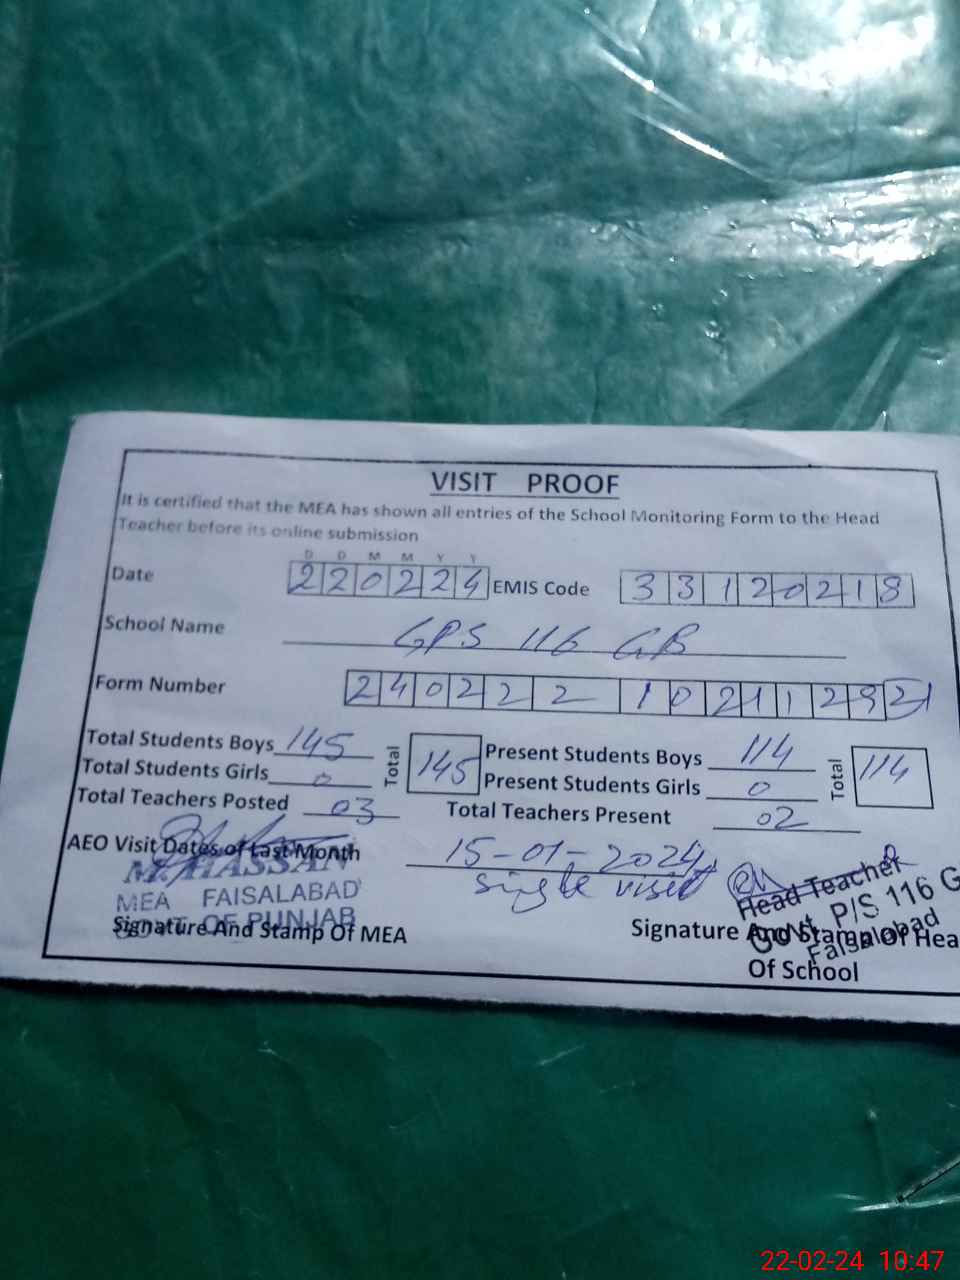 VISIT PROOF
It is certified that the MEA has shown all entries of the School Monitoring Form to the Head
Teacher before its online submission
D D M M Y Y
Date 220224 EMIS Code 33120218
School Name GPS 116 GB
Form Number
Total Students Boys 145 Total 145 Present Students Boys 114 Total 114
Total Students Girls 0 Present Students Girls 0
Total Teachers Posted 03 Total Teachers Present 02
AEO Visit Dates of Last Month 15-01-2024
single visit
M. HASSAN
MEA FAISALABAD
GOVT. OF PUNJAB
Signature And Stamp Of MEA
Head Teacher
Govt P/S 116 G
Faisalabad
Signature And Stamp Of Hea
Of School
22-02-24 10:47